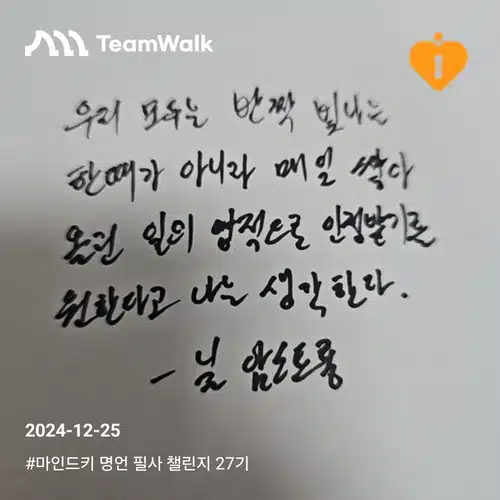 TeamWalk
우리 모두는 반짝 빛나는
한때가 아니라 매일 쌓아
올린 일의 업적으로 인정받기를
원한다고 나는 생각한다.
- 닐 암스트롱
2024-12-25
#마인드키 명언 필사 챌린지 27기